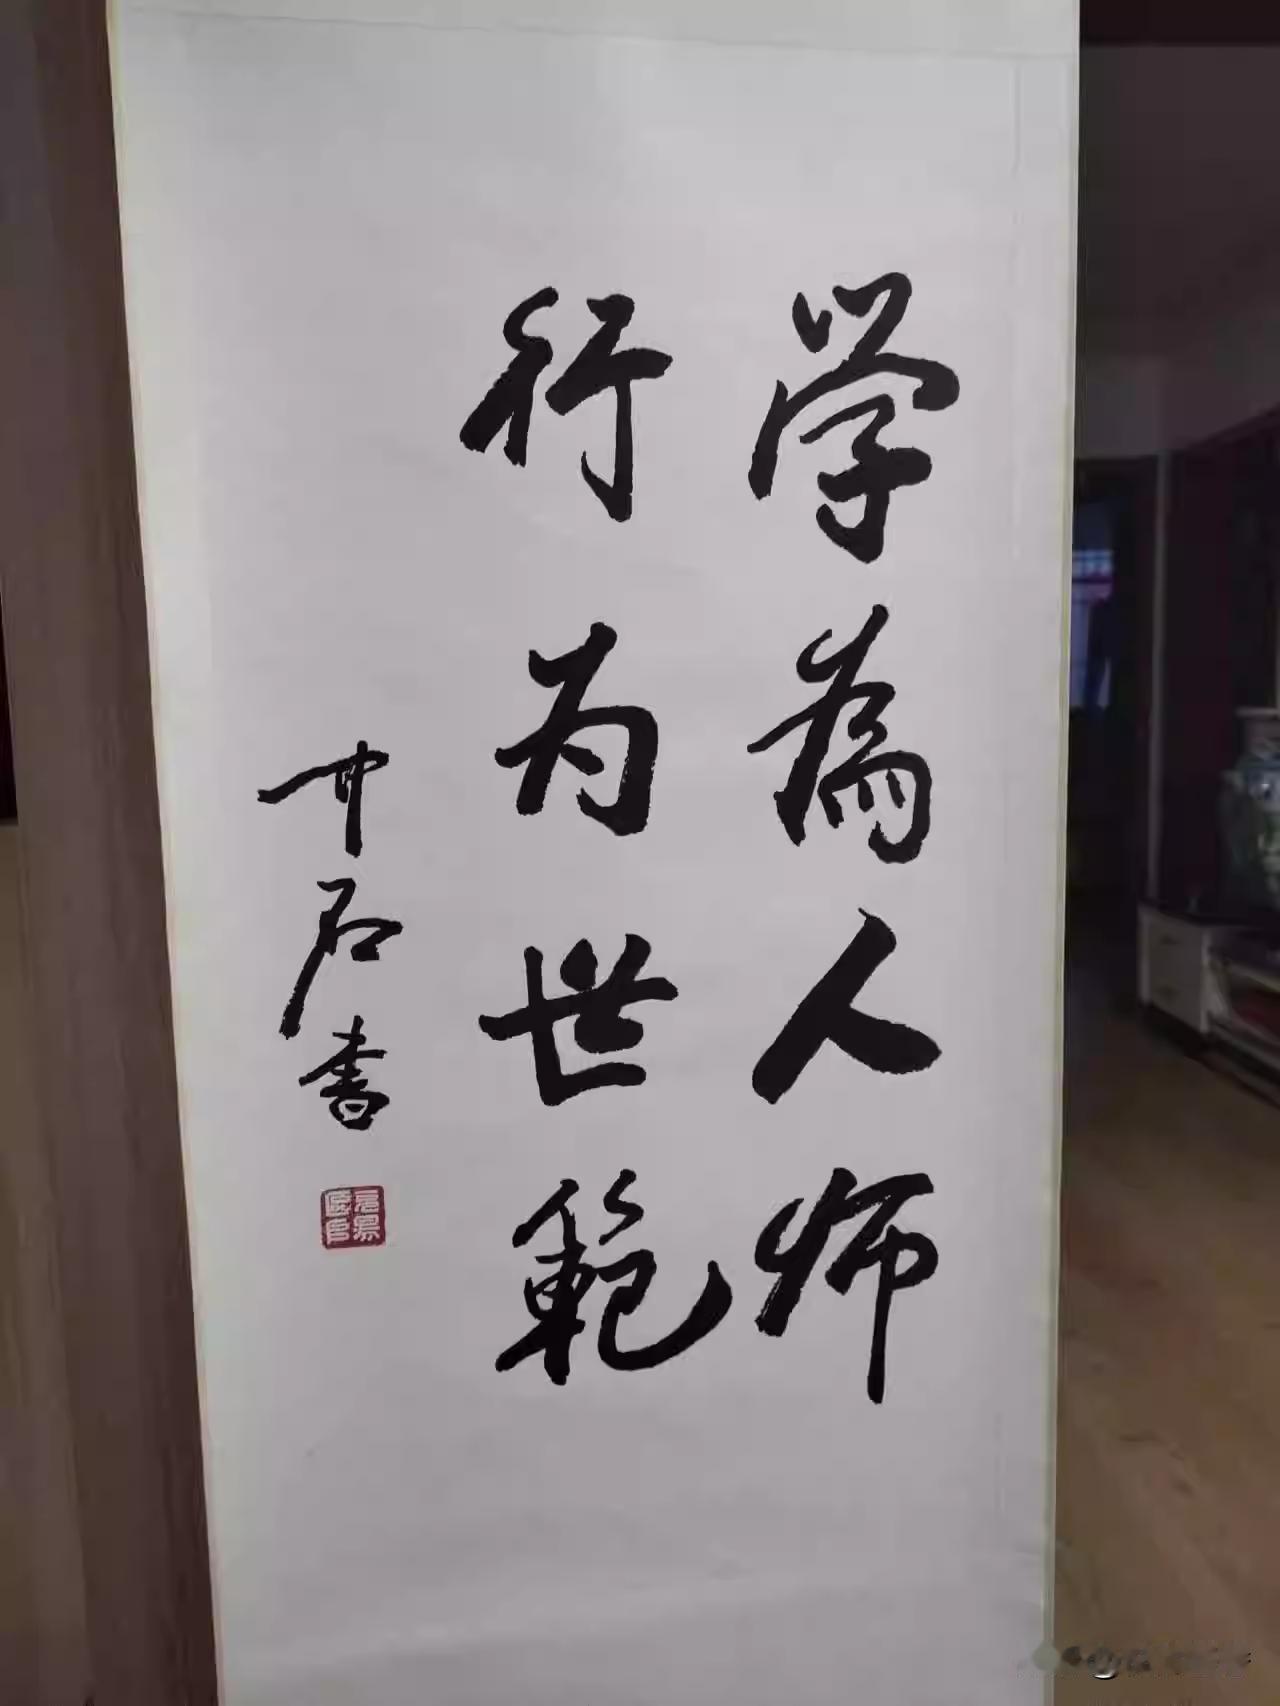 学為人师
行为世範
中石書